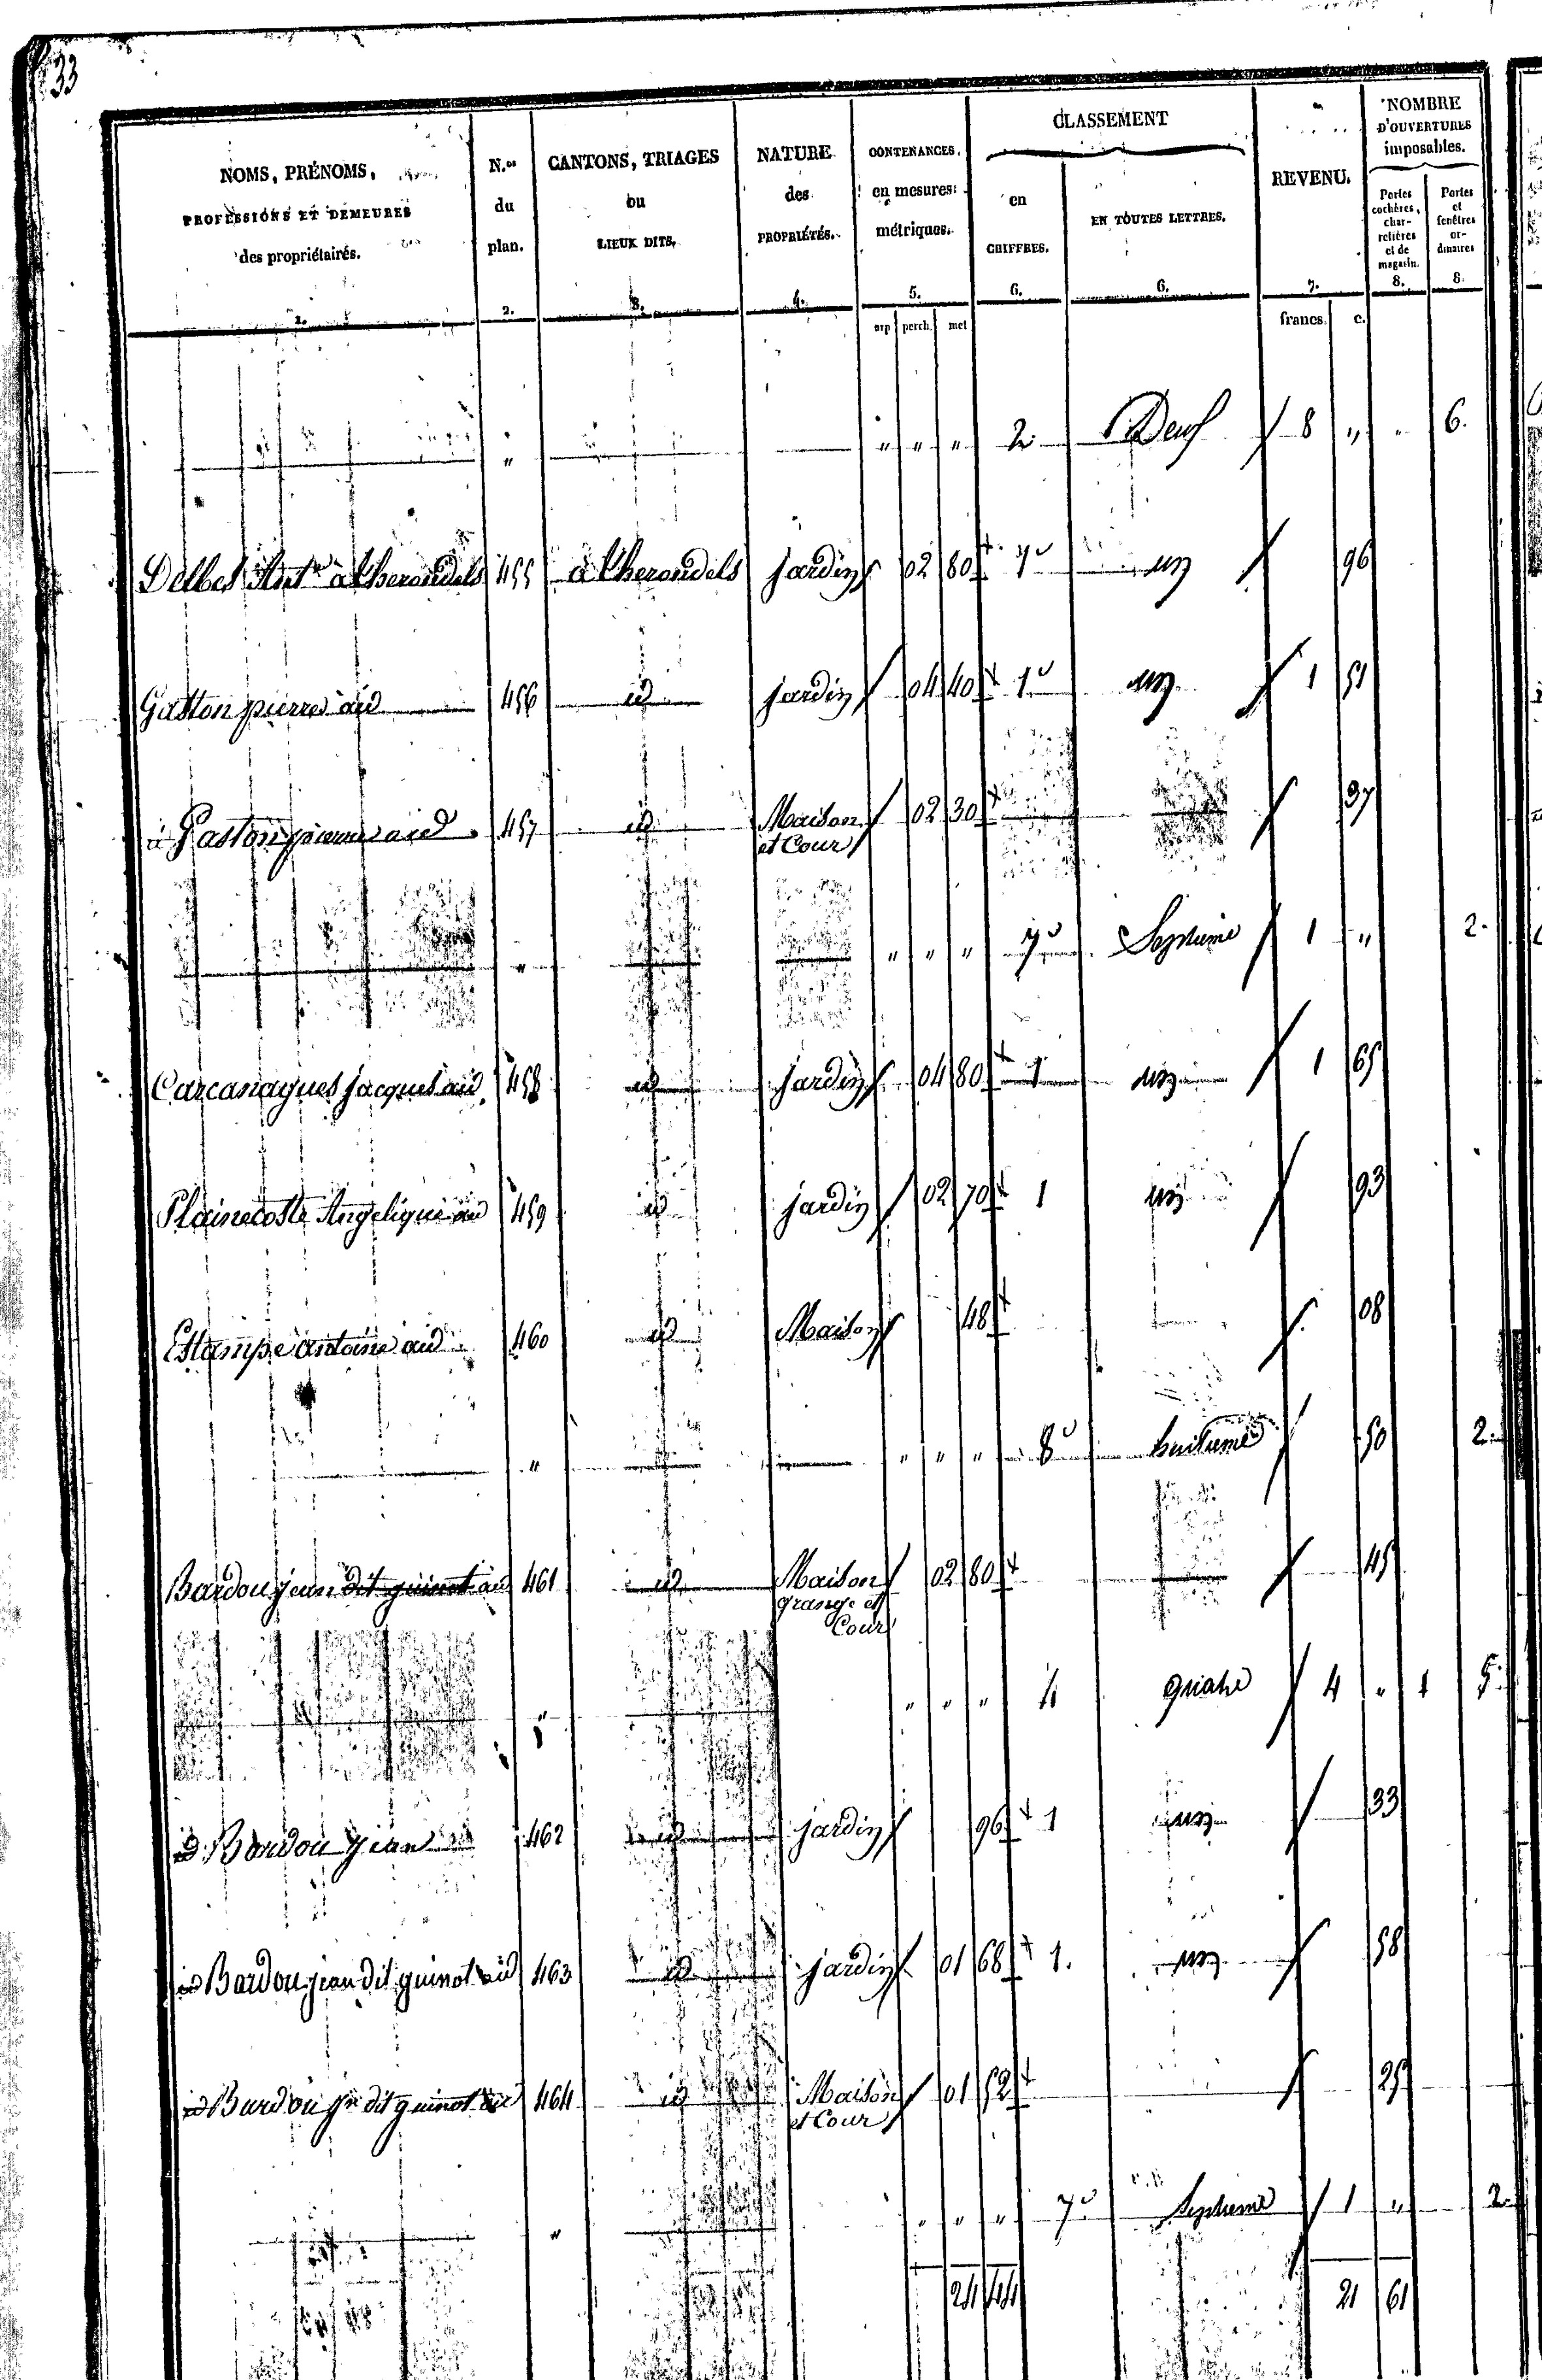 33
NOMS, PRÉNOMS, PROFESSIONS ET DEMEURES des propriétaires. 1.
N.os du plan. 2.
CANTONS, TRIAGES ou LIEUX DITS. 3.
NATURE des PROPRIÉTÉS. 4.
CONTENANCES. en mesures métriques. 5.
CLASSEMENT
en CHIFFRES. 6.
EN TOUTES LETTRES. 6.
REVENU. 7.
NOMBRE D'OUVERTURES imposables.
Portes cochères, charretières et de magasin. 8.
Portes et fenêtres ordinaires 8.
arp perch. met francs. c.
" " " " 2 Deux 8 " " 6.
Delbes Ant.e à Therondels 455 à Therondels jardin 02 80 1e un 96
Gaston pierre aid 456 id jardin 04 40 1e un 1 51
Gaston pierre aid 457 id Maison et Cour 02 30 37
" " " " 7e Septieme 1 " 2.
Carcanagues jacques aid 458 id jardin 04 80 1 un 1 65
Plainecoste Angelique aid 459 id jardin 02 70 1 un 93
Estampe antoine aid 460 id Maison 48 08
" " " " 8e huitieme 50 2.
Bardou jean dit guinot aid 461 id Maison grange et Cour 02 80 45
" " " " 4 quatre 4 " 1 5.
id Bardou jean 462 id jardin 96 1 un 33
id Bardou jean dit guinot aid 463 id jardin 01 68 1. un 58
id Bardou jn dit guinot aid 464 id Maison et Cour 01 52 25
" " " " 7e Septieme 1 " 2.
24 44 21 61